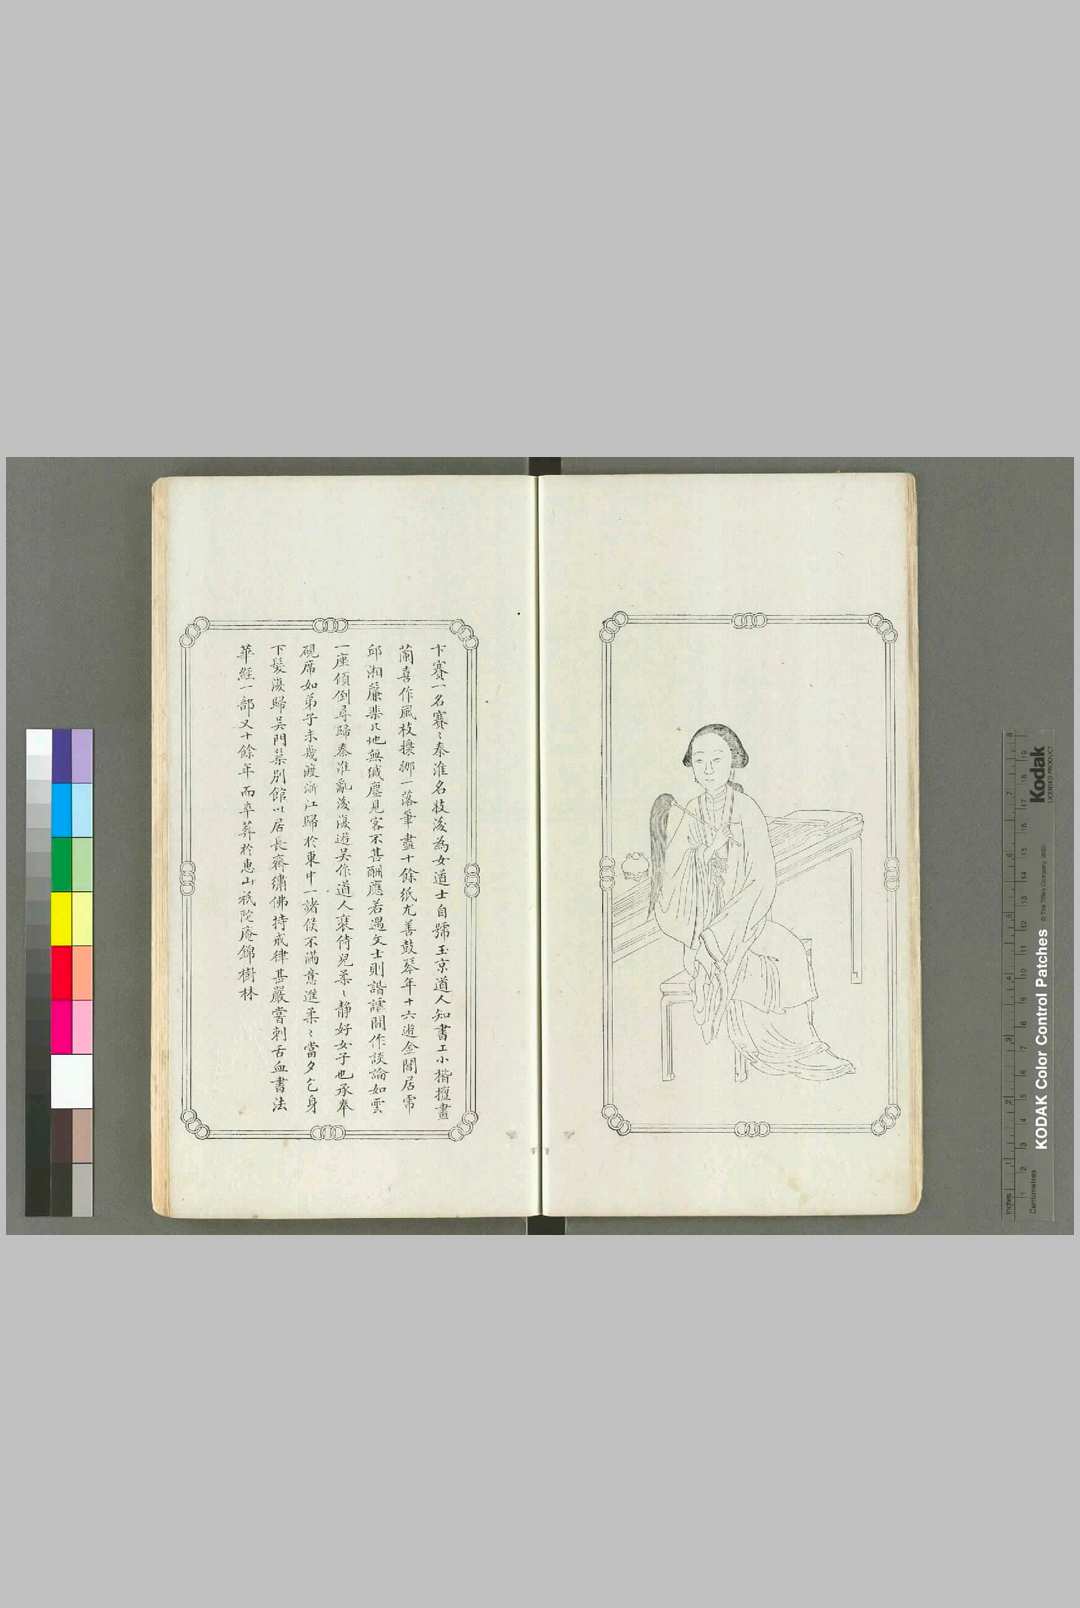 卞賽一名賽〻秦淮名妓後為女道士自號玉京道人知書工小楷擅畫
蘭喜作風枝裊娜一落筆盡十餘紙尤善鼓琴年十六遊金閶居虎
邱湘簾棐几地無纎塵見客不甚酬應若遇文士則諧謔間作談論如雲
一座傾倒尋歸秦淮亂後復遊吳作道人裝侍兒柔〻靜好女子也承奉
硯席如弟子未幾渡浙江歸於東中一諸侯不滿意進柔〻當夕乞身
下髮復歸吳門築別館以居長齋繡佛持戒律甚嚴嘗刺舌血書法
華經一部又十餘年而卒葬於惠山祇陀庵錦樹林
Kodak
LICENSED PRODUCT
KODAK Color Control Patches
© The Tiffen Company, 2000
Inches
Centimetres